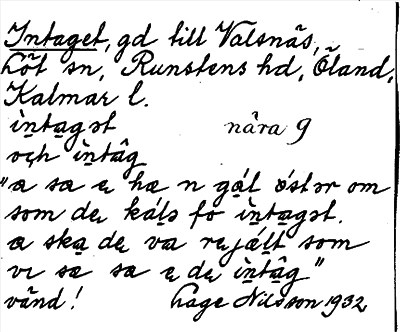 Intaget, gd till Valsnäs,
Löt sn, Runstens hd, Öland,
Kalmar l.
ìntagət nära 9
och ìntâg
"a sa e ha n gál östər om
som de kálə fo ìntagət.
a ska de va rejált som
vi sa sa e de ìntâg"
vänd! Hage Nilsson 1932